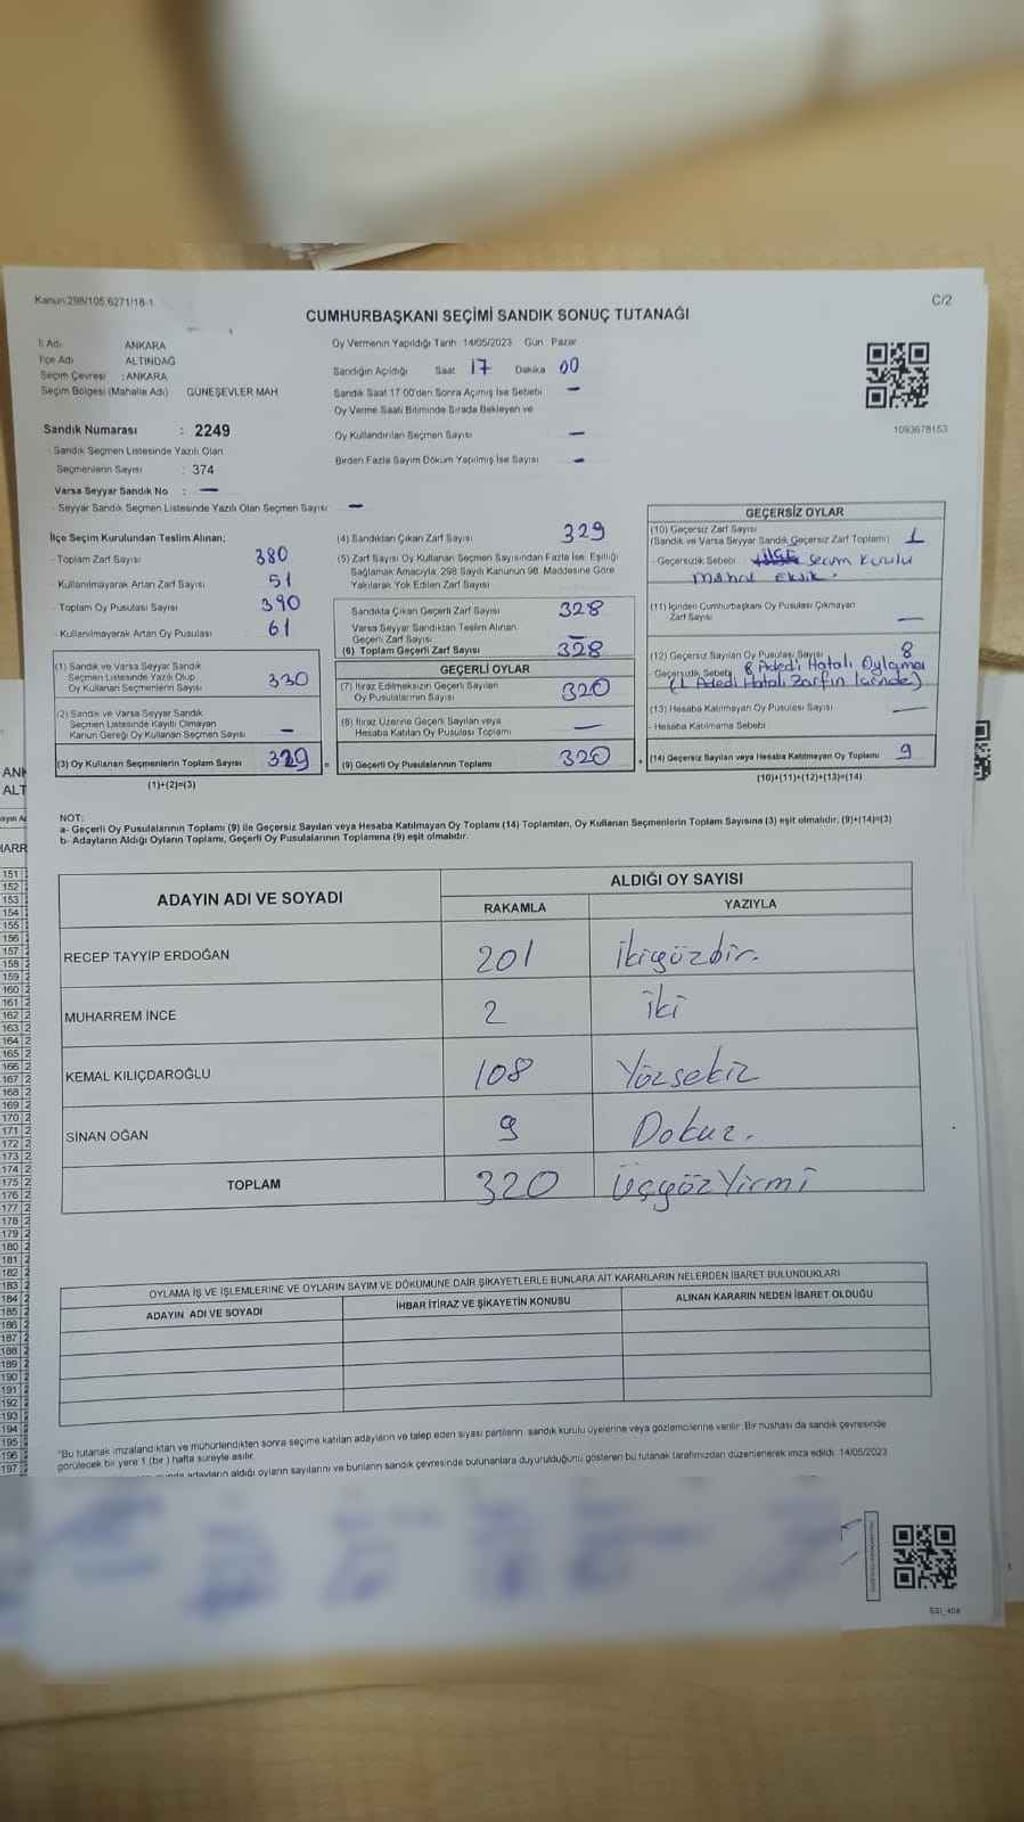 Kanun:298/105,6271/18-1
C/2
CUMHURBAŞKANI SEÇİMİ SANDIK SONUÇ TUTANAĞI
İl Adı ANKARA
İlçe Adı ALTINDAĞ
Seçim Çevresi : ANKARA
Seçim Bölgesi (Mahalle Adı) GÜNEŞEVLER MAH
Sandık Numarası : 2249
Sandık Seçmen Listesinde Yazılı Olan
Seçmenlerin Sayısı : 374
Varsa Seyyar Sandık No : —
Seyyar Sandık Seçmen Listesinde Yazılı Olan Seçmen Sayısı —
Oy Vermenin Yapıldığı Tarih 14/05/2023 Gün Pazar
Sandığın Açıldığı Saat 17 Dakika 00
Sandık Saat 17:00'den Sonra Açılmış İse Sebebi —
Oy Verme Saati Bitiminde Sırada Bekleyen ve
Oy Kullandırılan Seçmen Sayısı —
Birden Fazla Sayım Döküm Yapılmış İse Sayısı —
1093678153
İlçe Seçim Kurulundan Teslim Alınan;
- Toplam Zarf Sayısı 380
- Kullanılmayarak Artan Zarf Sayısı 51
- Toplam Oy Pusulası Sayısı 390
- Kullanılmayarak Artan Oy Pusulası 61
(1) Sandık ve Varsa Seyyar Sandık
Seçmen Listesinde Yazılı Olup
Oy Kullanan Seçmenlerin Sayısı 330
(2) Sandık ve Varsa Seyyar Sandık
Seçmen Listesinde Kayıtlı Olmayan
Kanun Gereği Oy Kullanan Seçmen Sayısı —
(3) Oy Kullanan Seçmenlerin Toplam Sayısı 329
(1)+(2)=(3)
(4) Sandıktan Çıkan Zarf Sayısı 329
(5) Zarf Sayısı Oy Kullanan Seçmen Sayısından Fazla İse, Eşitliği
Sağlamak Amacıyla, 298 Sayılı Kanunun 98. Maddesine Göre
Yakılarak Yok Edilen Zarf Sayısı
Sandıkta Çıkan Geçerli Zarf Sayısı 328
Varsa Seyyar Sandıktan Teslim Alınan
Geçerli Zarf Sayısı —
(6) Toplam Geçerli Zarf Sayısı 328
GEÇERLİ OYLAR
(7) İtiraz Edilmeksizin Geçerli Sayılan
Oy Pusulalarının Sayısı 320
(8) İtiraz Üzerine Geçerli Sayılan veya
Hesaba Katılan Oy Pusulası Toplamı —
= (9) Geçerli Oy Pusulalarının Toplamı 320
GEÇERSİZ OYLAR
(10) Geçersiz Zarf Sayısı
(Sandık ve Varsa Seyyar Sandık Geçersiz Zarf Toplamı) 1
- Geçersizlik Sebebi Seçim Kurulu
Mührü Eksik.
(11) İçinden Cumhurbaşkanı Oy Pusulası Çıkmayan
Zarf Sayısı —
(12) Geçersiz Sayılan Oy Pusulası Sayısı 8
Geçersizlik Sebebi 8 Aded'i Hatalı Oylama
(1 Adedi Hatalı Zarfın İçinde)
(13) Hesaba Katılmayan Oy Pusulası Sayısı —
- Hesaba Katılmama Sebebi
+ (14) Geçersiz Sayılan veya Hesaba Katılmayan Oy Toplamı 9
(10)+(11)+(12)+(13)=(14)
NOT:
a- Geçerli Oy Pusulalarının Toplamı (9) ile Geçersiz Sayılan veya Hesaba Katılmayan Oy Toplamı (14) Toplamları, Oy Kullanan Seçmenlerin Toplam Sayısına (3) eşit olmalıdır. (9)+(14)=(3)
b- Adayların Aldığı Oyların Toplamı, Geçerli Oy Pusulalarının Toplamına (9) eşit olmalıdır.
ADAYIN ADI VE SOYADI
ALDIĞI OY SAYISI
RAKAMLA YAZIYLA
RECEP TAYYİP ERDOĞAN 201 İkiyüzbir.
MUHARREM İNCE 2 İki
KEMAL KILIÇDAROĞLU 108 Yüzsekiz
SİNAN OĞAN 9 Dokuz.
TOPLAM 320 ÜçyüzYirmi
OYLAMA İŞ VE İŞLEMLERİNE VE OYLARIN SAYIM VE DÖKÜMÜNE DAİR ŞİKAYETLERLE BUNLARA AİT KARARLARIN NELERDEN İBARET BULUNDUKLARI
ADAYIN ADI VE SOYADI İHBAR İTİRAZ VE ŞİKAYETİN KONUSU ALINAN KARARIN NEDEN İBARET OLDUĞU
"Bu tutanak imzalandıktan ve mühürlendikten sonra seçime katılan adayların ve talep eden siyasi partilerin sandık kurulu üyelerine veya gözlemcilerine verilir. Bir nüshası da sandık çevresinde
görülecek bir yere 1 (bir) hafta süreyle asılır.
adayların aldığı oyların sayılarını ve bunların sandık çevresinde bulunanlara duyurulduğunu gösteren bu tutanak tarafımızdan düzenlenerek imza edildi. 14/05/2023
ANK
ALT
151
152
153
154
155
156
157
158
159
160
161
162
163
164
165
166
167
168
169
170
171
172
173
174
175
176
177
178
179
180
181
182
183
184
185
186
187
188
189
190
191
192
193
194
195
196
197